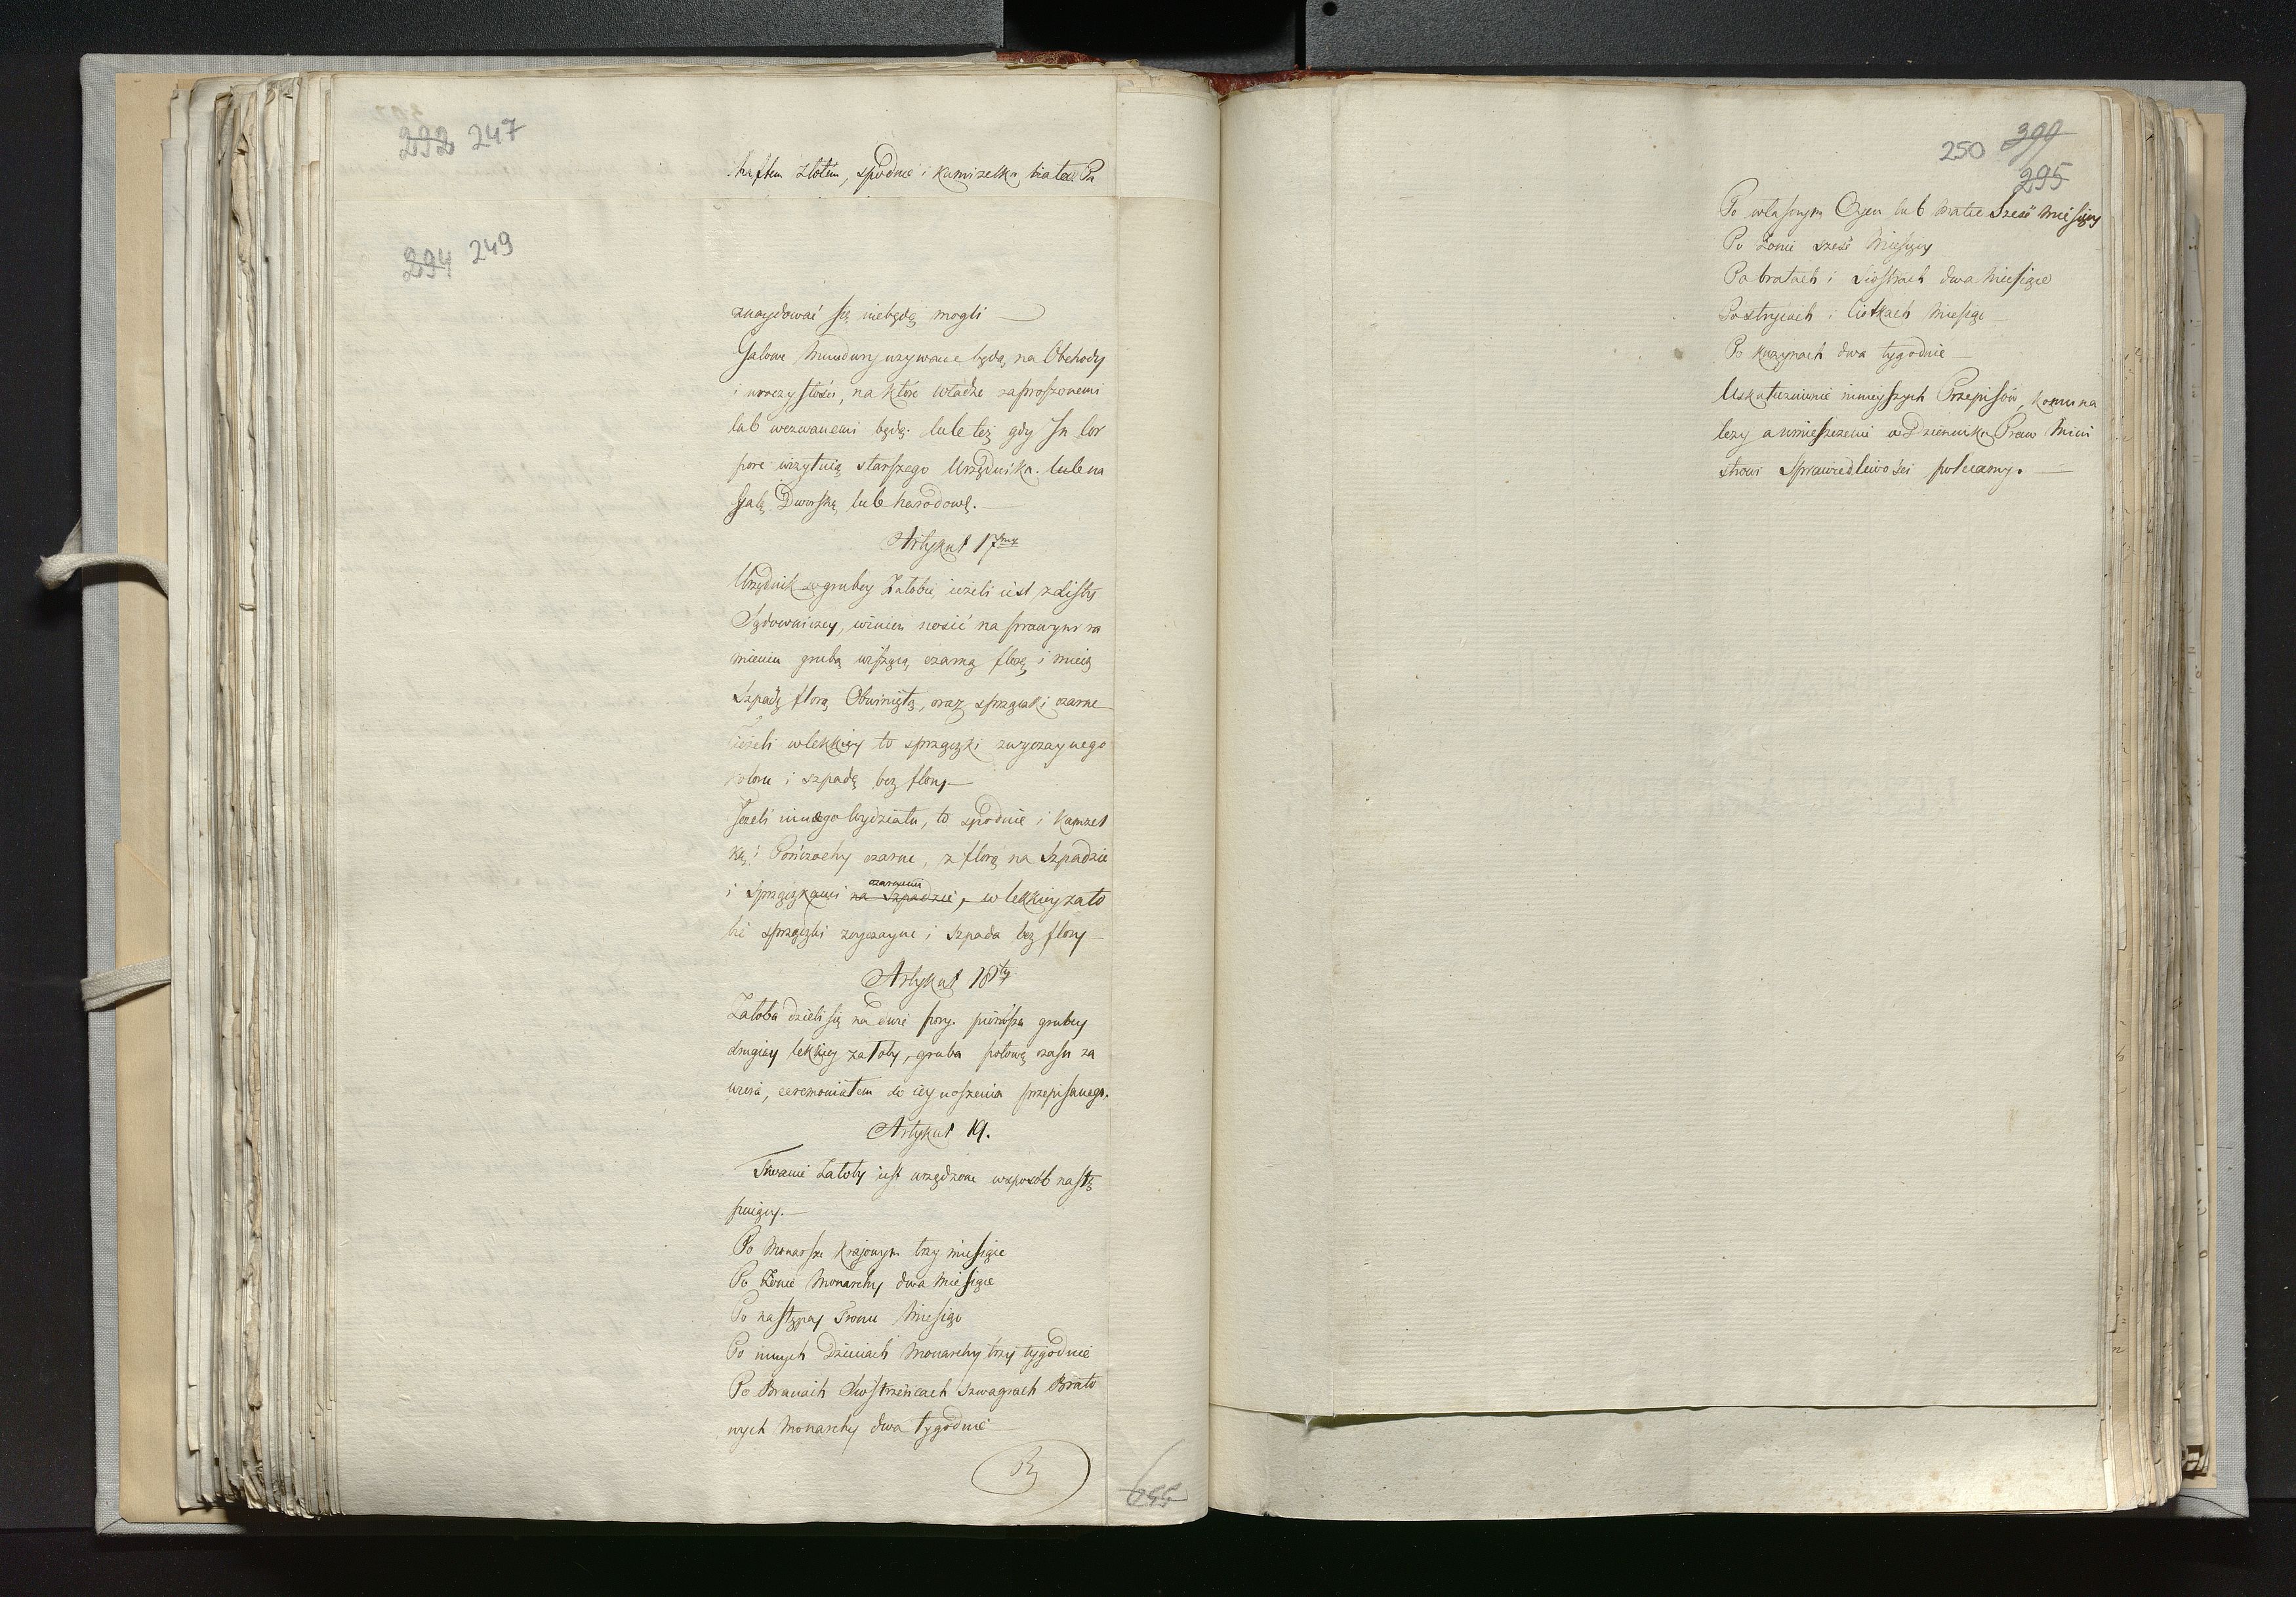 292 247
haftem złotem, spodnie i kamizelka biała. Pa
294 249
znaydować się niebędą mogli —
Galowe Mundury używane będą, na Obchody
i uroczystości, na które Władze zaproszonemi
lub wezwanemi będą. lub też gdy In Cor
pore wizytuią starszego Urzędnika. lub na
Galę Dworską lub Narodową. —
Artykuł 17my
Urzędnik w grubey Żałobie, ieżeli iest z Listy
Sądowniczey, winien nosić na prawym ra
mieniu grubą wiszącą czarną florę i mieć
Szpadę florą Obwiniętą, oraz sprzączki czarne
ieżeli w lekkiey to sprzączki zwyczaynego
koloru i szpadę bez flory —
Jeżeli innego Wydziału, to spodnie i kamzel
kę i Pończochy czarne, z florą na Szpadzie
i Sprzączkami na Szpadzie, w lekkiey żało
czarnemi
bie sprzączki zwyczayne i Szpada bez flory —
Artykuł 18ty
Żałoba dzieli się na dwie pory. pierwsza grubey
drugiey lekkiey żałoby, gruba połowę czasu za
wiera, ceremoniałem do iey noszenia przepisanego.
Artykuł 19.
Trwanie Żałoby iest urządzone w sposób nastę
puiący. —
Po Monarsze krajowym trzy miesiące
Po Żonie Monarchy dwa Miesiące
Po następcy Tronu Miesiąc
Po innych Dzieciach Monarchy trzy tygodnie
Po Braciach Siostrzeńcach Szwagrach Brato
wych Monarchy dwa tygodnie —
250 399
295
Po własnym Oycu lub Matce Sześć Miesięcy
Po Żonie sześć Miesięcy
Po bratach i Siostrach dwa Miesiące
Po stryiach i Ciotkach Miesiąc
Po kuzynach dwa tygodnie —
Uskutecznienie ninieyszych Przepisów, komu na
leży a umieszczenie w Dzienniku Praw Mini
strowi Sprawiedliwości polecamy. —